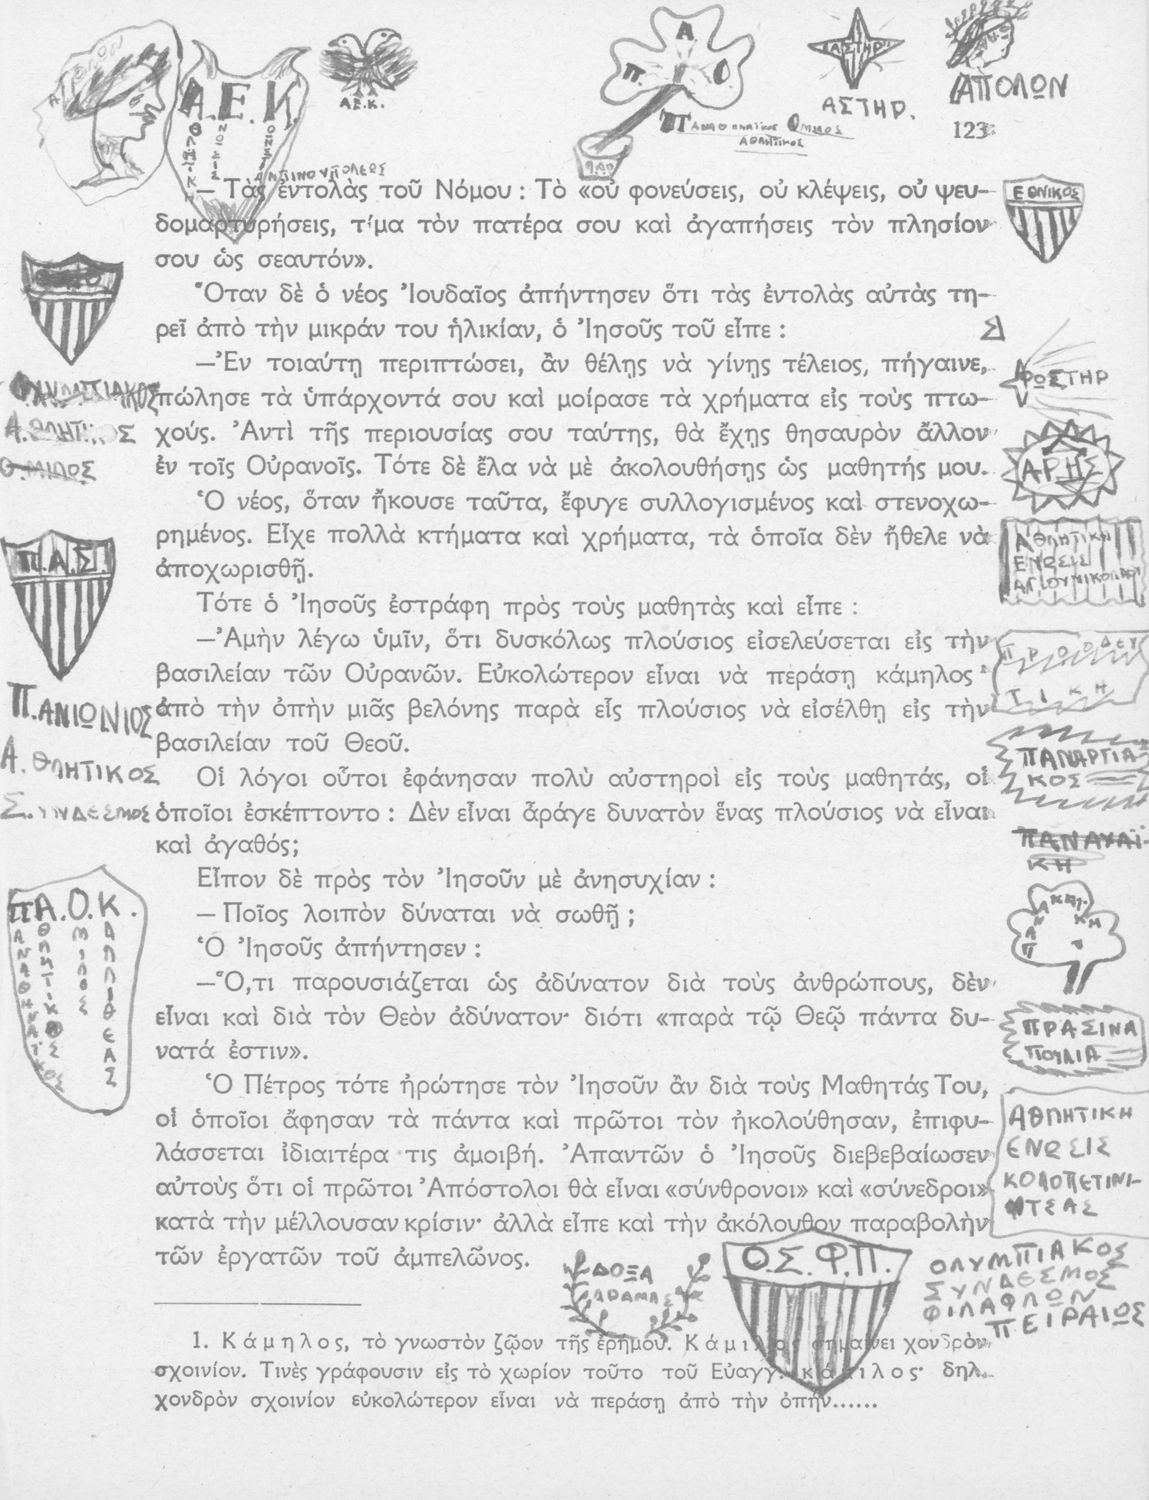 Α.Ε.Κ.
Α.Ε.Κ.
Π.Α.Ο
ΠΑΝΑΘΗΝΑΪΚΟΣ ΟΜΙΛΟΣ
ΑΘΛΗΤΙΚΟΣ
ΑΣΤΗΡ
ΑΣΤΗΡ.
ΑΠΟΛΩΝ
123
— Τὰς ἐντολὰς τοῦ Νόμου : Τὸ «οὐ φονεύσεις, οὐ κλέψεις, οὐ ψευ-
δομαρτυρήσεις, τίμα τὸν πατέρα σου καὶ ἀγαπήσεις τὸν πλησίον
σου ὡς σεαυτόν».
Ὅταν δὲ ὁ νέος Ἰουδαῖος ἀπήντησεν ὅτι τὰς ἐντολὰς αὐτὰς τη-
ρεῖ ἀπὸ τὴν μικράν του ἡλικίαν, ὁ Ἰησοῦς τοῦ εἶπε :
—Ἐν τοιαύτῃ περιπτώσει, ἂν θέλῃς νὰ γίνῃς τέλειος, πήγαινε,
πώλησε τὰ ὑπάρχοντά σου καὶ μοίρασε τὰ χρήματα εἰς τοὺς πτω-
χούς. Ἀντὶ τῆς περιουσίας σου ταύτης, θὰ ἔχῃς θησαυρὸν ἄλλον
ἐν τοῖς Οὐρανοῖς. Τότε δὲ ἔλα νὰ μὲ ἀκολουθήσῃς ὡς μαθητής μου.
Ὁ νέος, ὅταν ἤκουσε ταῦτα, ἔφυγε συλλογισμένος καὶ στενοχω-
ρημένος. Εἶχε πολλὰ κτήματα καὶ χρήματα, τὰ ὁποῖα δὲν ἤθελε νὰ
ἀποχωρισθῇ.
Τότε ὁ Ἰησοῦς ἐστράφη πρὸς τοὺς μαθητὰς καὶ εἶπε :
—Ἀμὴν λέγω ὑμῖν, ὅτι δυσκόλως πλούσιος εἰσελεύσεται εἰς τὴν
βασιλείαν τῶν Οὐρανῶν. Εὐκολώτερον εἶναι νὰ περάσῃ κάμηλος ¹
ἀπὸ τὴν ὀπὴν μιᾶς βελόνης παρὰ εἷς πλούσιος νὰ εἰσέλθῃ εἰς τὴν
βασιλείαν τοῦ Θεοῦ.
Οἱ λόγοι οὗτοι ἐφάνησαν πολὺ αὐστηροὶ εἰς τοὺς μαθητάς, οἱ
ὁποῖοι ἐσκέπτοντο : Δὲν εἶναι ἆράγε δυνατὸν ἕνας πλούσιος νὰ εἶναι
καὶ ἀγαθός;
Εἶπον δὲ πρὸς τὸν Ἰησοῦν μὲ ἀνησυχίαν :
— Ποῖος λοιπὸν δύναται νὰ σωθῇ ;
Ὁ Ἰησοῦς ἀπήντησεν :
—Ὅ,τι παρουσιάζεται ὡς ἀδύνατον διὰ τοὺς ἀνθρώπους, δὲν
εἶναι καὶ διὰ τὸν Θεὸν ἀδύνατον· διότι «παρὰ τῷ Θεῷ πάντα δυ-
νατά ἐστιν».
Ὁ Πέτρος τότε ἠρώτησε τὸν Ἰησοῦν ἂν διὰ τοὺς Μαθητάς Του,
οἱ ὁποῖοι ἄφησαν τὰ πάντα καὶ πρῶτοι τὸν ἠκολούθησαν, ἐπιφυ-
λάσσεται ἰδιαιτέρα τις ἀμοιβή. Ἀπαντῶν ὁ Ἰησοῦς διεβεβαίωσεν
αὐτοὺς ὅτι οἱ πρῶτοι Ἀπόστολοι θὰ εἶναι «σύνθρονοι» καὶ «σύνεδροι»
κατὰ τὴν μέλλουσαν κρίσιν· ἀλλὰ εἶπε καὶ τὴν ἀκόλουθον παραβολὴν
τῶν ἐργατῶν τοῦ ἀμπελῶνος.
1. Κάμηλος, τὸ γνωστὸν ζῷον τῆς ἐρήμου. Κάμιλος σημαίνει χονδρὸν
σχοινίον. Τινὲς γράφουσιν εἰς τὸ χωρίον τοῦτο τοῦ Εὐαγγ. κάμιλος· δηλ.
χονδρὸν σχοινίον εὐκολώτερον εἶναι νὰ περάσῃ ἀπὸ τὴν ὀπήν......
ΟΛΥΜΠΙΑΚΟΣ
ΑΘΛΗΤΙΚΟΣ
ΟΜΙΛΟΣ
Π.Α.Σ.
ΠΑΝΙΩΝΙΟΣ
ΑΘΛΗΤΙΚΟΣ
ΣΥΝΔΕΣΜΟΣ
ΠΑ.Ο.Κ.
ΕΘΝΙΚΟΣ
ΦΩΣΤΗΡ
ΑΡΗΣ
ΑΘΛΗΤΙΚΗ
ΕΝΩΣΙΣ
ΠΡΟΟΔΕΥ
ΤΙΚΗ
ΠΑΝΑΡΓΙΑ-
ΚΟΣ
ΠΑΝΑΧΑΪ-
ΚΗ
ΠΡΑΣΙΝΑ
ΠΟΥΛΙΑ
ΑΘΛΗΤΙΚΗ
ΕΝΩΣΙΣ
ΚΟΛΟΠΕΤΙΝΙ-
ΤΣΑΣ
ΔΟΞΑ
Ο.Σ.Φ.Π.
ΟΛΥΜΠΙΑΚΟΣ
ΣΥΝΔΕΣΜΟΣ
ΦΙΛΑΦΛΩΝ
ΠΕΙΡΑΙΩΣ